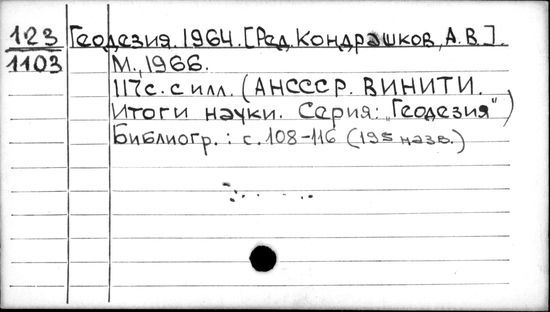 123 Геодезия. 1964. [Ред. Кондрашков, А.В.].
1103 М., 1966.
117с. с илл. (АНСССР. ВИНИТИ.
Итоги науки. Серия: "Геодезия")
Библиогр.: с. 108-116 (195 назв.)